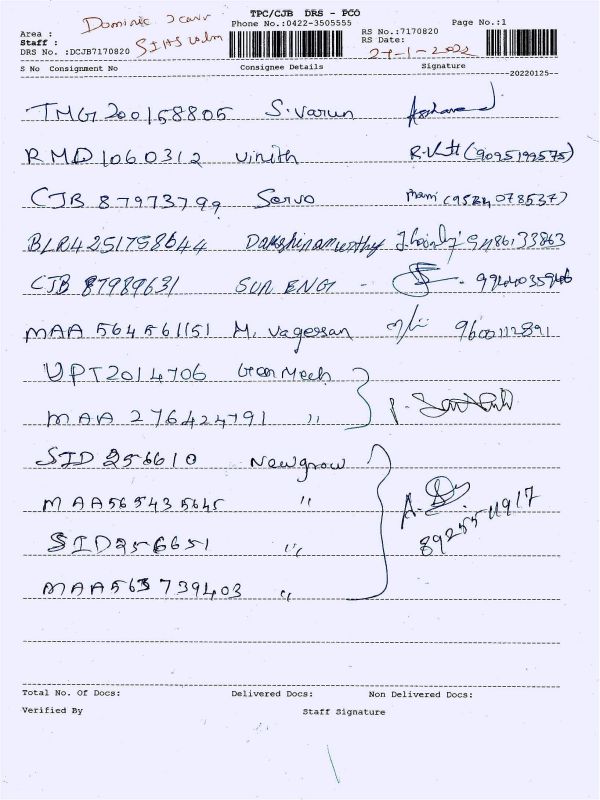 TPC/CJB DRS - PCO
Area : Dominic Phone No.:0422-3505555 Page No.:1
Staff : SIHS RS No.:7170820
DRS No. :DCJB7170820 RS Date:
S No Consignment No Consignee Details Signature
--20220125--
TMG200158805 S.Varun
RMD1060312 Vinith (9095199575)
CJB 87973799 Servo Mani (9524078537)
BLR4251758644 Dakshinamurthy 9486133863
CJB 87989631 SUN ENG - 9944035946
MAA 564561151 M. Vagessan 9600112891
UPT2014706 Gean Mech
MAA 276424791 "
SID 256610 Newgrow
MAA565435645 "
SID256651 "
A. 8925511917
MAA563739403 "
Total No. Of Docs: Delivered Docs: Non Delivered Docs:
Verified By Staff Signature